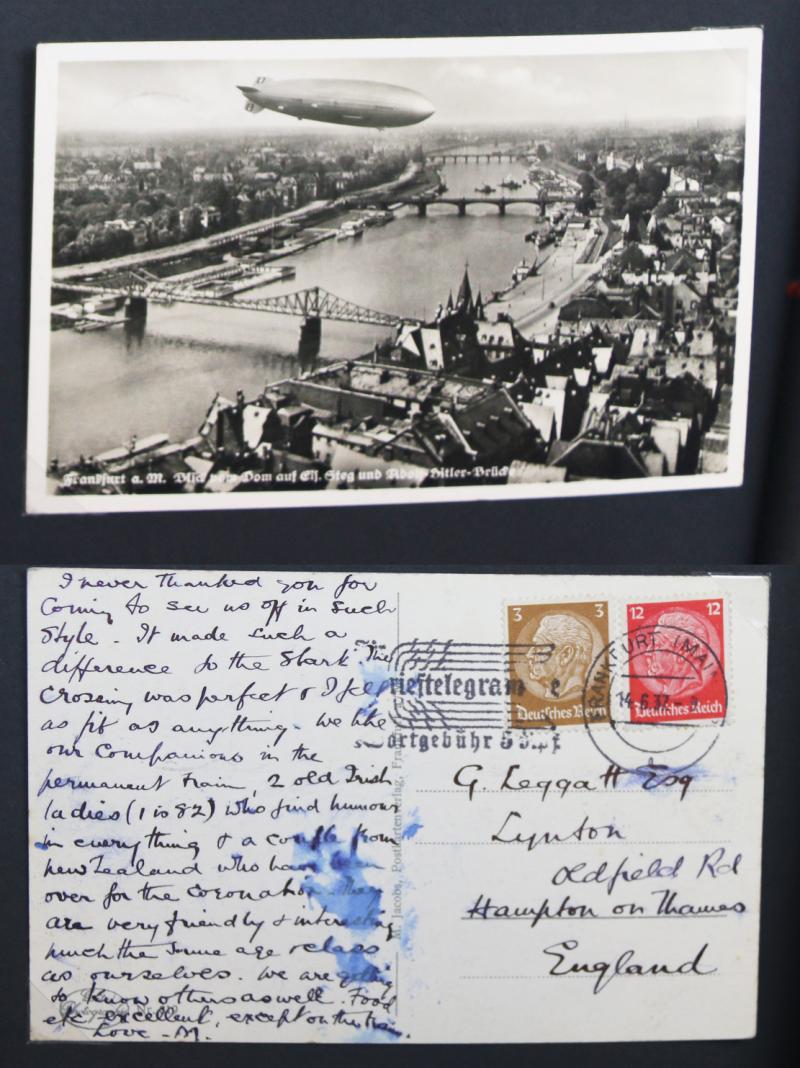 Frankfurt a. M. Blick vom Dom auf Eis. Steg und Adolf-Hitler-Brücke
I never thanked you for
Coming to see us off in such
Style. It made such a
difference to the Start. The
Crossing was perfect & I feel
as fit as anything. We like
our Companions in the
permanent train, 2 old Irish
ladies (1 is 82) who find humour
in everything & a couple from
New Zealand who have been
over for the Coronation. They
are very friendly & interesting
much the same age & class
as ourselves. We are getting
to know others as well. Food
etc excellent, except on the train.
Love - M.
M. Jacobs, Postkartenverlag, Frankfurt
3 3
Deutsches Reich
12 12
Deutsches Reich
Für
Brieftelegramme
Wortgebühr 5
FRANKFURT (MAIN
14.6.37
G. Leggatt Esq
Lynton
Oldfield Rd
Hampton on Thames
England